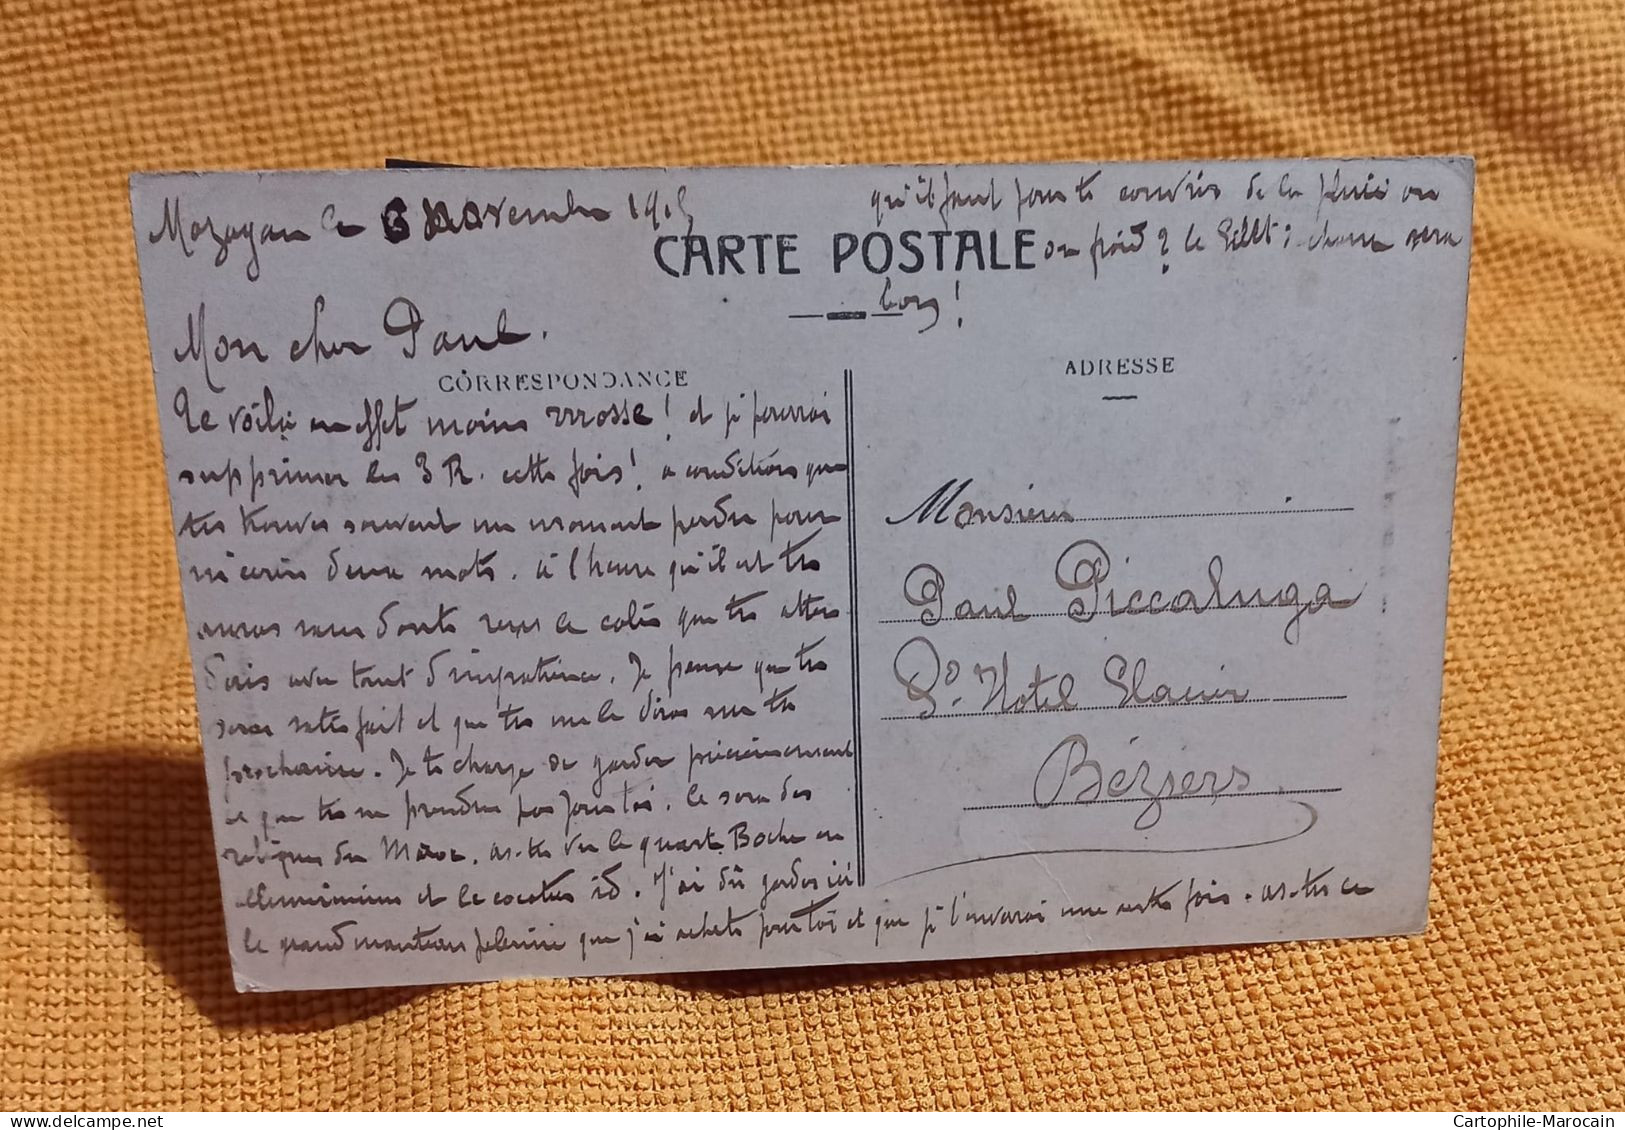 Mazagan le 6 Novembre 1915
CARTE POSTALE
Mon cher Paul.
CORRESPONDANCE
Te voilà en effet moins rosse! et je pourrai
supprimer les 3 R. cette fois! a condition que
tu trouves souvent un moment perdu pour
m'écrire deux mots. à l'heure qu'il est tu
auras sans doute reçu le colis que tu atten
dais avec tant d'impatience. Je pense que tu
seras satisfait et que tu me le diras sur ta
prochaine. Je te charge de garder précieusement
ce que tu ne prendras pas pour toi. Ce sera des
reliques du Maroc. as-tu vu le quart Boche en
alluminium et le couteau id. J'ai dû garder ici
le grand manteau pelerine que j'ai acheté pour toi et que je t'enverrai une autre fois. as-tu ce
qu'il faut pour te couvrir de la pluie ou
du froid? le gilet: chaud sera
bon!
ADRESSE
Monsieur
Paul Piccaluga
Hotel
Béziers
Cartophile-Marocain